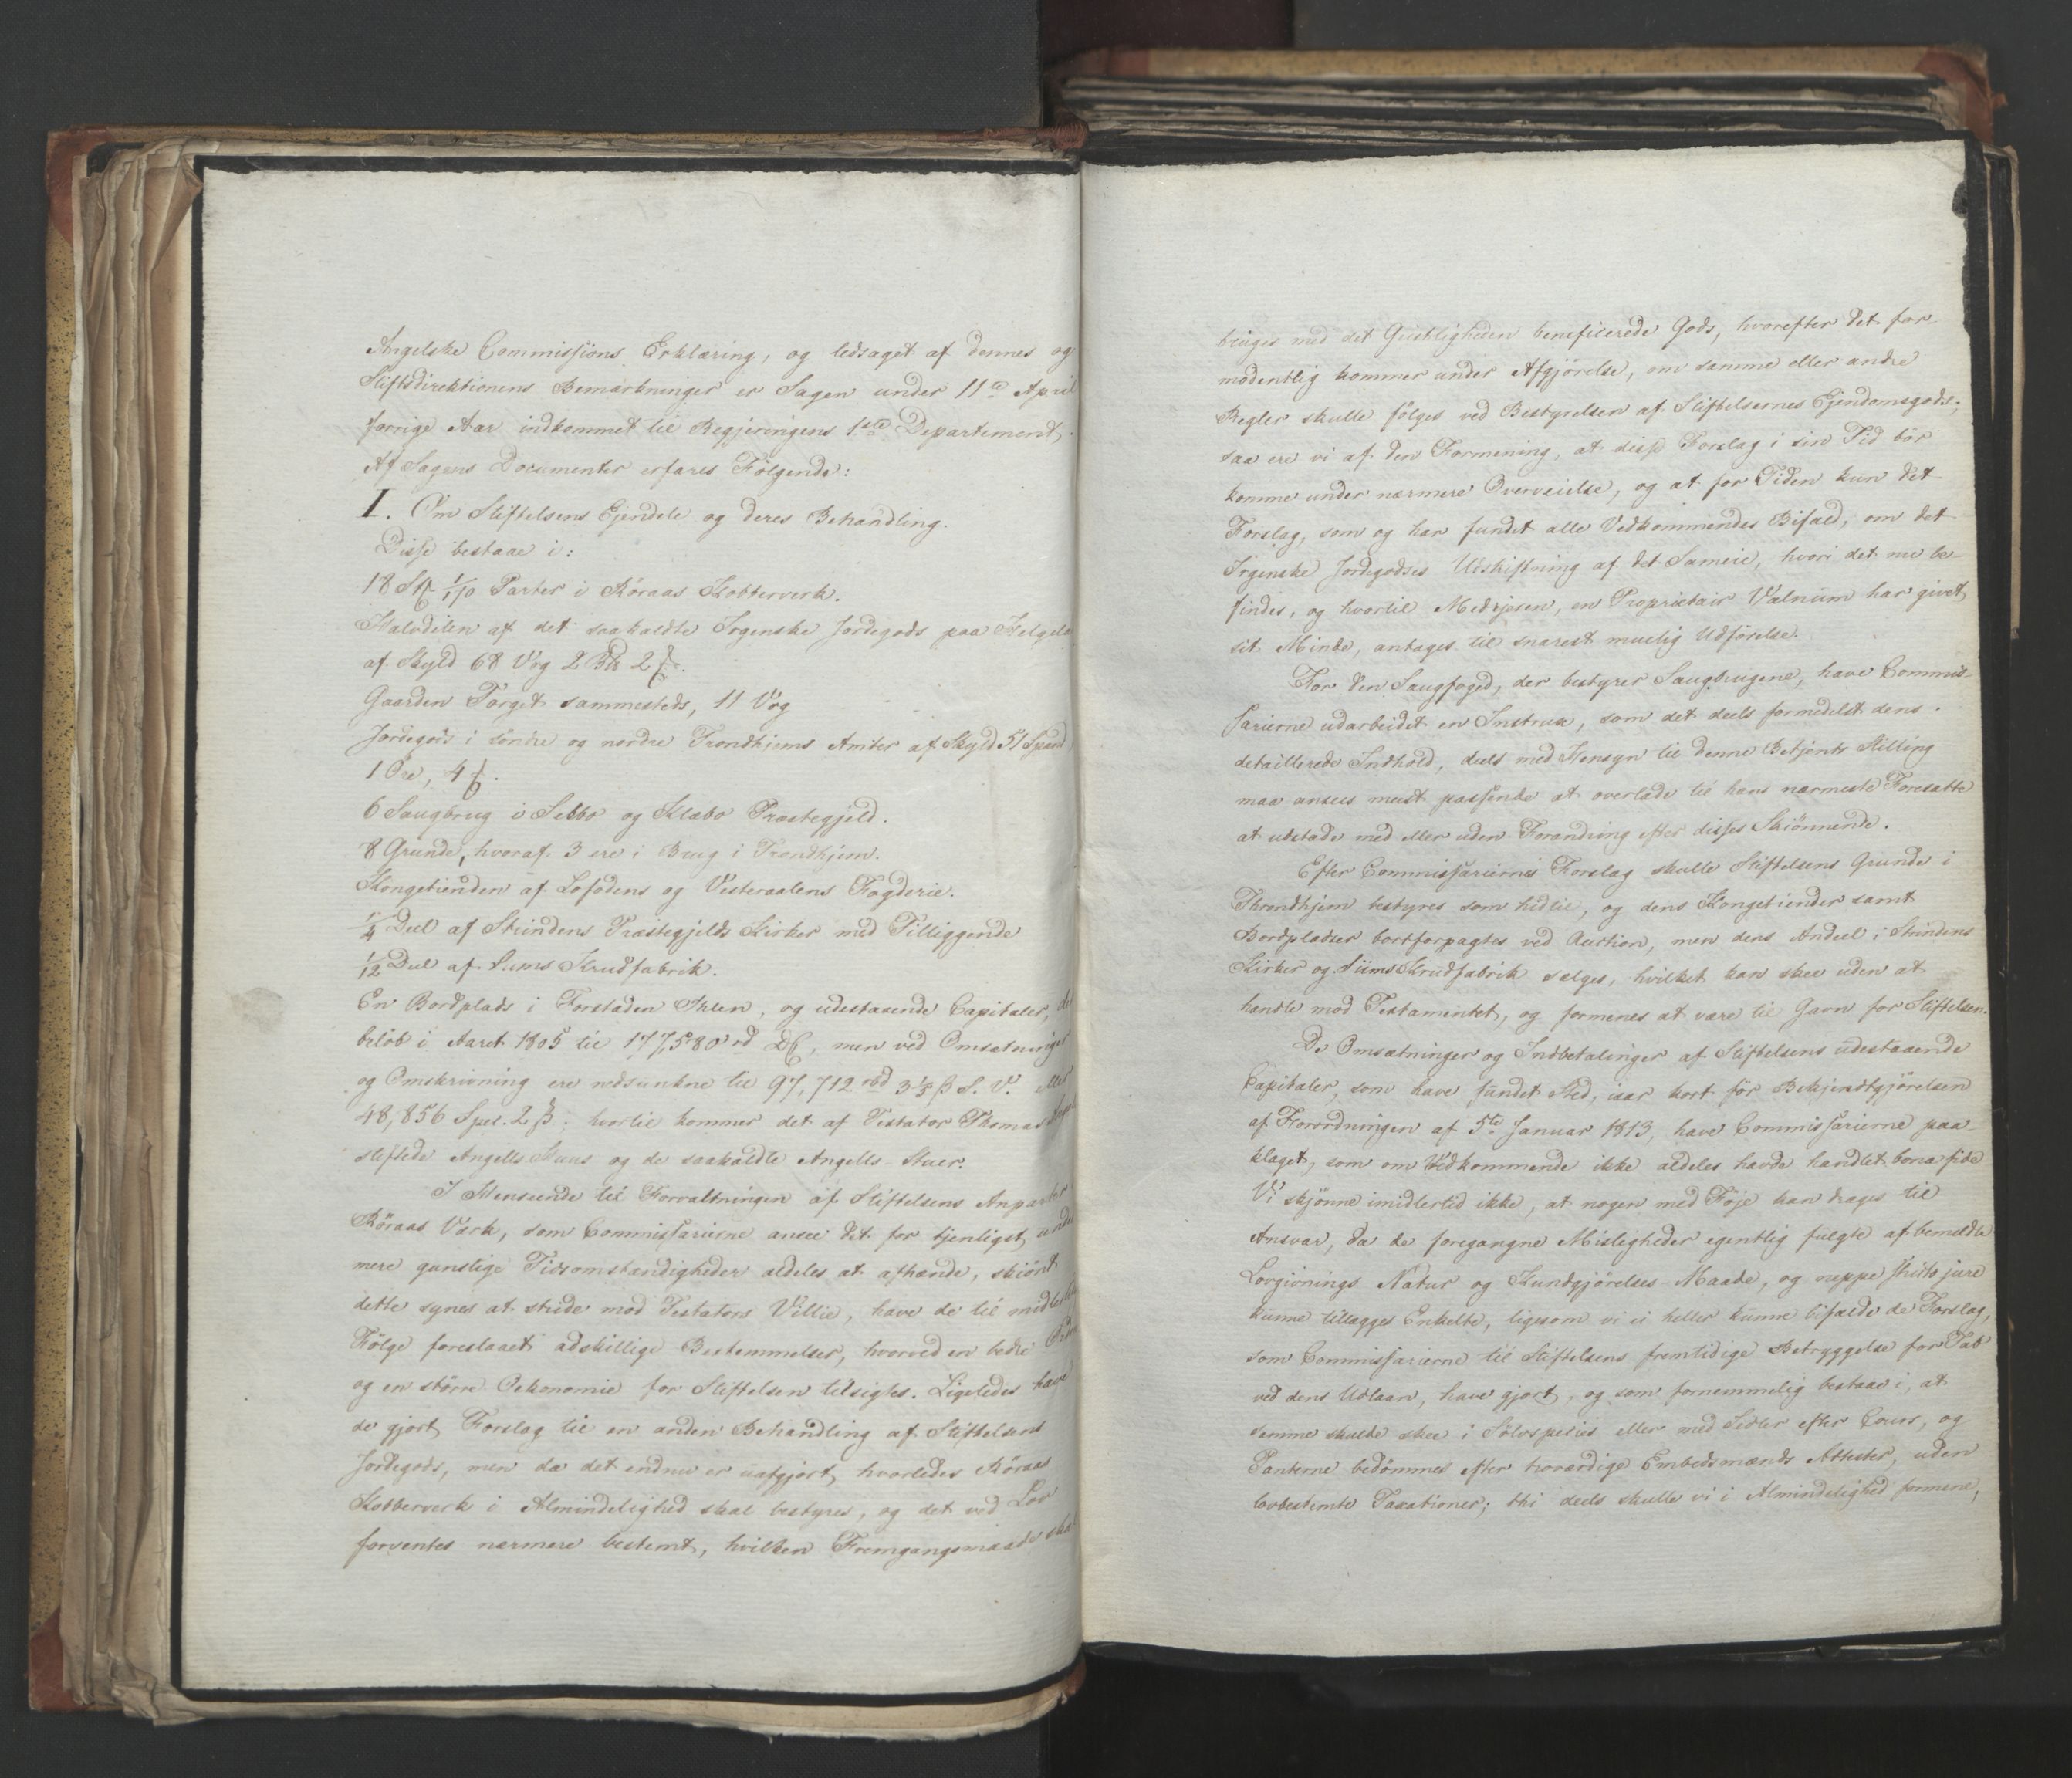 Angelske Commissions Erklæring, og ledsaget af dennes og
Stiftsdirektionens Bemærkninger er Sagen under 11te April
forrige Aar indkommet til Regjeringens 1ste Departement.
Af Sagens Documenter erfares Følgende:
I. Om Stiftelsens Ejendele og deres Behandling.
Disse bestaae i:
18 Parter i Röraas Kobberverk.
Halvdelen af det saakaldte Irgenske Jordegods paa Helgel
af Skyld 68 Vog 2 2
Gaarden Torget sammesteds, 11 Vog
Jordegods i söndre og nordre Trondhjems Amter af Skyld 51 Spand
1 Öre, 4
6 Saugbrug i Selbo og Klæbo Præstegjeld.
8 Grunde, hvoraf 3 ere i Brug i Trondhjem.
Kongetienden af Lofodens og Vesteraalens Fogderie.
1/4 Deel af Strindens Præstegjelds Kirker med Tilliggende
1/12 Deel af Liums Krudfabrik.
En Bordplads i Forstaden Ihlen, og udestaaende Capitaler, de
belöb i Aaret 1805 til 177,580 rd, men ved Omsætninger
og Omskrivning ere nedsunkne til 97,712 rbd 3 1/5 ß S. V. eller
48,856 Spec. 2 ß; hvortil kommer det af Testator Thomas
stiftede Angells Huus og de saakaldte Angells Stuer.
I Henseende til Forvaltningen af Stiftelsens Anparter
Röraas Værk, som Commissarierne ansee det for tjenligst, under
mere gunstige Tidsomstændigheder aldeles at afhænde, skiönt
dette synes at stride mod Testators Villie, have de til midlertid
Fölge foreslaaet adskillige Bestemmelser, hvorved en bedre
og en större Oekonomie for Stiftelsen tilsigtes. Ligeledes have
de gjort Forslag til en anden Behandling af Stiftelsens
Jordegods, men da det endnu er uafgjort, hvorledes Röraas
Kobberverk i Almindelighed skal bestyres, og det ved Lov
forventes nærmere bestemt, hvilken Fremgangsmaade skal
bruges med det Geistligheden beneficerede Gods, hvorefter det for-
modentlig kommer under Afgjörelse, om samme eller andre
Regler skulle fölges ved Bestyrelsen af Stiftelsernes Ejendomsgods;
saa ere vi af den Formening, at disse Forslag i sin Tid bör
komme under nærmere Overveielse, og at for Tiden kun det
Forslag, som og har fundet alle Vedkommendes Bifald, om det
Irgenske Jordegodses Udskiftning af det Sameie, hvori det nu be-
findes, og hvortil Medejeren, en Proprietair Valnum har givet
sit Minde, antages til snarest muelig Udförelse.
For den Saugfoged, der bestyrer Saugbrugene, have Commis-
sarierne udarbeidet en Instrux, som det deels formedelst dens
detaillerede Indhold, deels med Hensyn til denne Betjents Stilling
maa ansees meest passende at overlade til hans nærmeste Foresatte
at udstæde med eller uden Forandring efter disses Skiönnende.
Efter Commissariernes Forslag skulle Stiftelsens Grunde i
Throndhjem bestyres som hidtil, og dens Kongetiender samt
Bordpladser bortforpagtes ved Auction, men dens Andeel i Strindens
Kirker og Liums Krudfabrik sælges, hvilket kan skee uden at
handle mod Testamentet, og formenes at være til Gavn for Stiftelsen.
De Omsætninger og Indbetalinger af Stiftelsens udestaaende
Capitaler, som have fundet Sted, især kort för Bekjendtgjörelsen
af Forordningen af 5te Januar 1813, have Commissarierne paa-
klaget, som om Vedkommende ikke aldeles havde handlet bona fide
Vi skjönne imidlertid ikke, at nogen med Föje kan drages til
Ansvar, da de foregangne Misligheder egentlig fulgte af bemeldte
Lovgivnings Natur og Kundgjörelses Maade, og neppe stricto jure
kunne tillægges Enkelte, ligesom vi ei heller kunne bifalde de Forslag,
som Commissarierne til Stiftelsens fremtidige Betryggelse for Tab
ved dens Udlaan, have gjort, og som fornemmelig bestaae i, at
samme skulde skee i Sölvspecies eller med Sedler efter Cours, og
Panterne bedömmes efter troværdige Embedsmænds Attester, uden
lovbestemte Taxationer; thi deels skulle vi i Almindelighed formene,